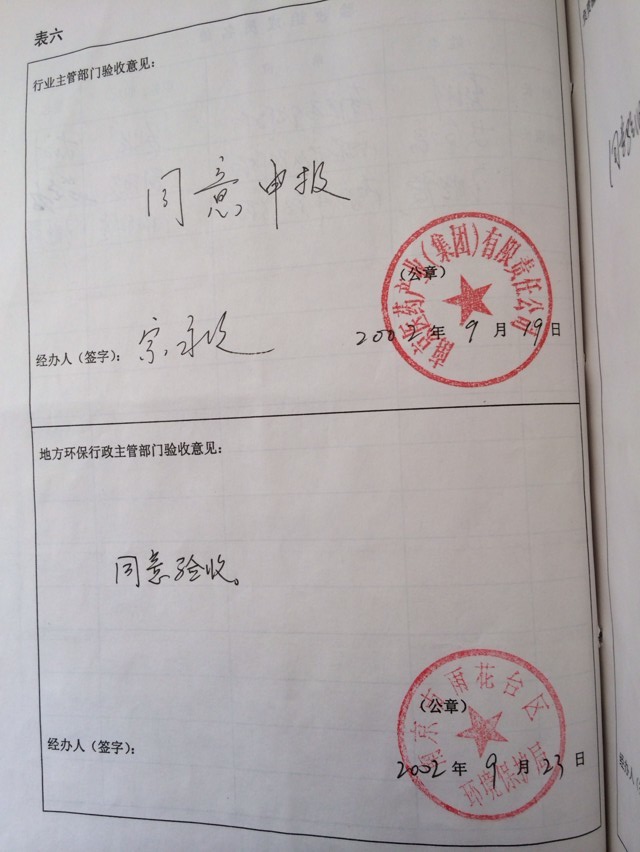 表六
行业主管部门验收意见：
同意申报
南京医药产业(集团)有限责任公司
（公章）
经办人（签字）：
2002年 9 月 19日
地方环保行政主管部门验收意见：
同意验收。
南京市雨花台区
环境保护局
（公章）
经办人（签字）：
2002年 9 月 23日